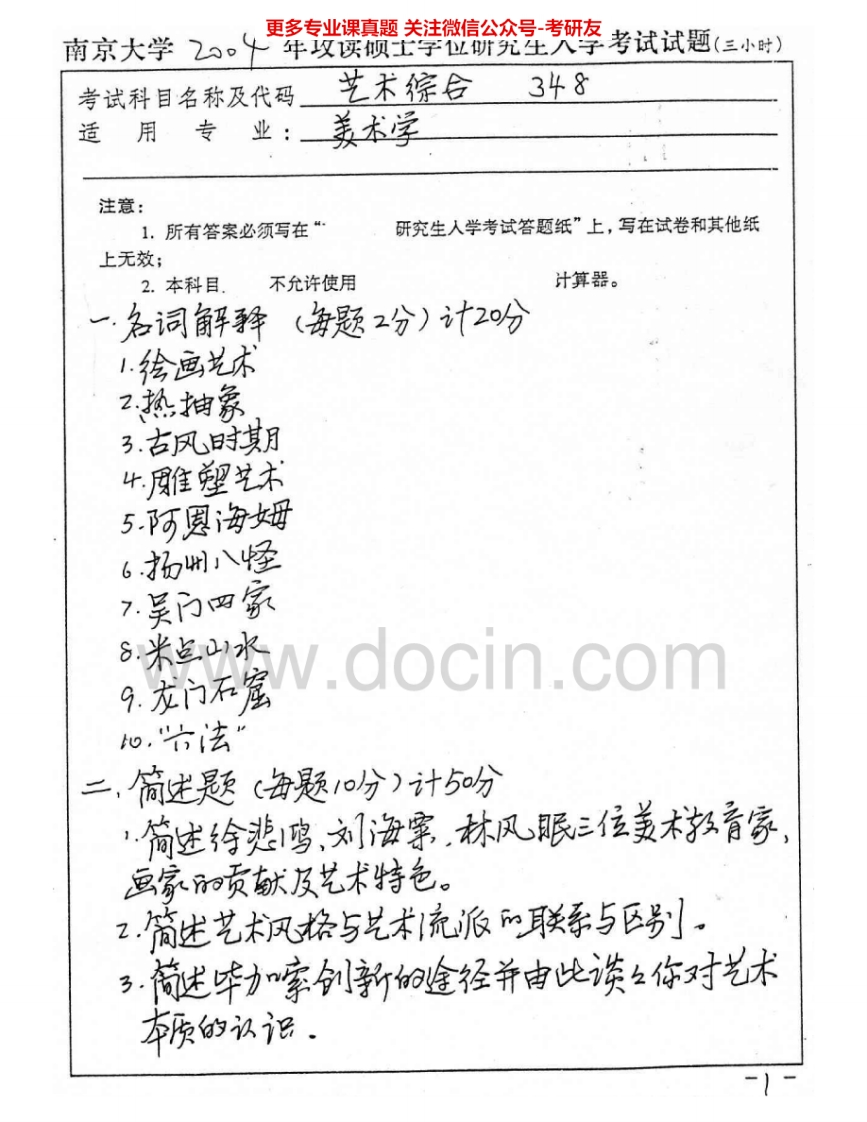 更多专业课真题 关注微信公众号-考研友
南京大学 2004 年攻读硕士学位研究生入学考试试题(三小时)
考试科目名称及代码 艺术综合 348
适用专业: 美术学
注意:
1. 所有答案必须写在“ 研究生入学考试答题纸”上,写在试卷和其他纸
上无效;
2. 本科目 不允许使用 计算器。
一.名词解释 (每题2分)计20分
1.绘画艺术
2.热抽象
3.古风时期
4.雕塑艺术
5.阿恩海姆
6.扬州八怪
7.吴门四家
8.米点山水
www.docin.com
9.龙门石窟
10.“六法”
二、简述题 (每题10分)计50分
1.简述徐悲鸿、刘海粟、林风眠三位美术教育家,
画家的贡献及艺术特色。
2.简述艺术风格与艺术流派的联系与区别。
3.简述毕加索创新的途径并由此谈谈你对艺术
本质的认识.
-1-